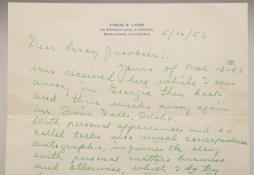 TYRUS R. COBB
48 SPENCER LANE, ATHERTON
MENLO PARK, CALIFORNIA
5/16/53
Dear Leroy Jacobsen:
yours of Mch 15th 53
was received here while I was
away, in Georgia then back
and three weeks away again
in Twin Falls, Idaho.
With personal appearances and so
called talks also much correspondence
autographs, inquiries etc along
with personal matters business
and otherwise, which I do try